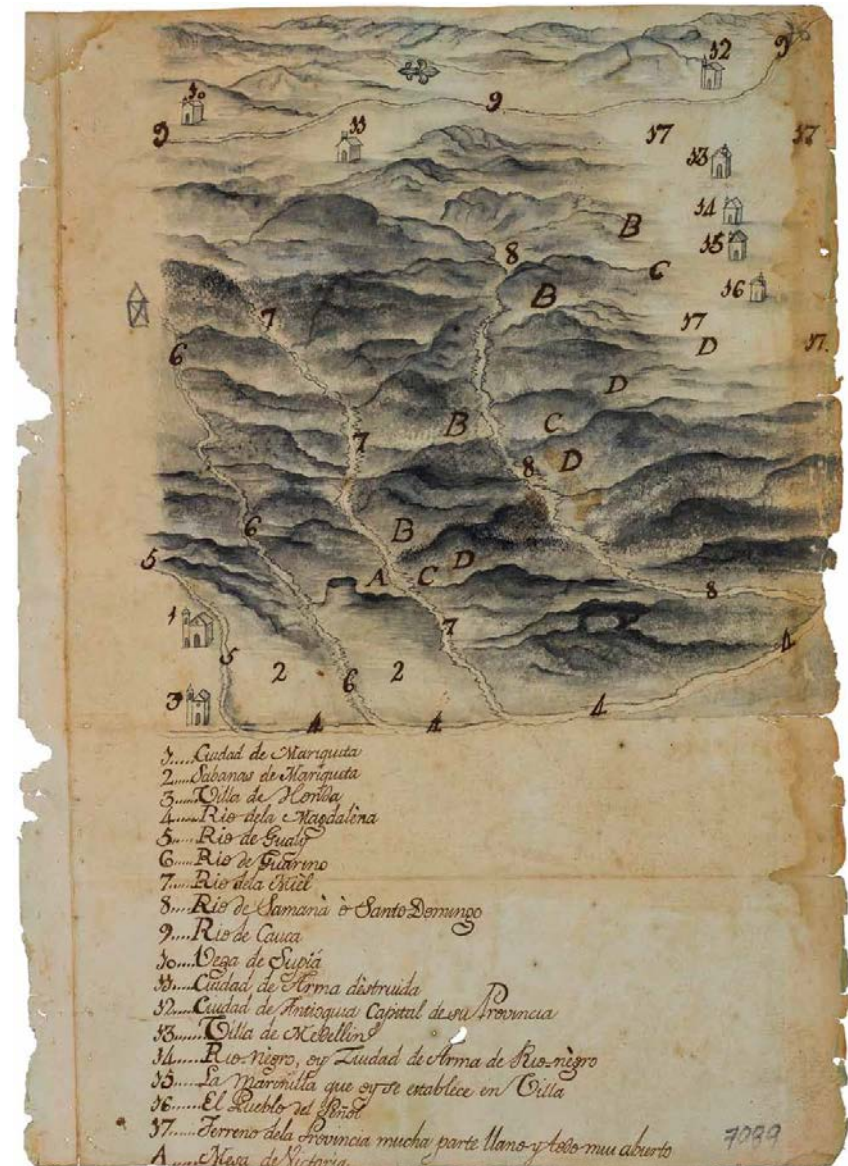 12
9
10
9
11
17
17
13
14
B
15
8
C
16
B
17
7
D
17
6
D
B
C
7
D
8
6
B
5
D
A
C
8
1
7
4
5
2
6
2
3
4
4
4
1.....Ciudad de Mariquita
2.....Sabanas de Mariquita
3.....Villa de Honda
4.....Rio dela Magdalena
5.....Rio de Gualy
6.....Rio de Guarino
7.....Rio dela Miel
8.....Rio de Samanà ò Santo Domingo
9.....Rio de Cauca
10.....Vega de Supiá
11.....Ciudad de Arma distruida
12.....Ciudad de Antioquia Capital de su Provincia
13.....Villa de Medellin
14.....Rio-nègro, oy Ziudad de Arma de Rio-nègro
15.....La Marinilla que oy se establece en Villa
16.....El Pueblo del Peñol
17.....Terreno dela Provincia mucha parte llano y todo mui abierto
7089
A.....Mesa de Victoria